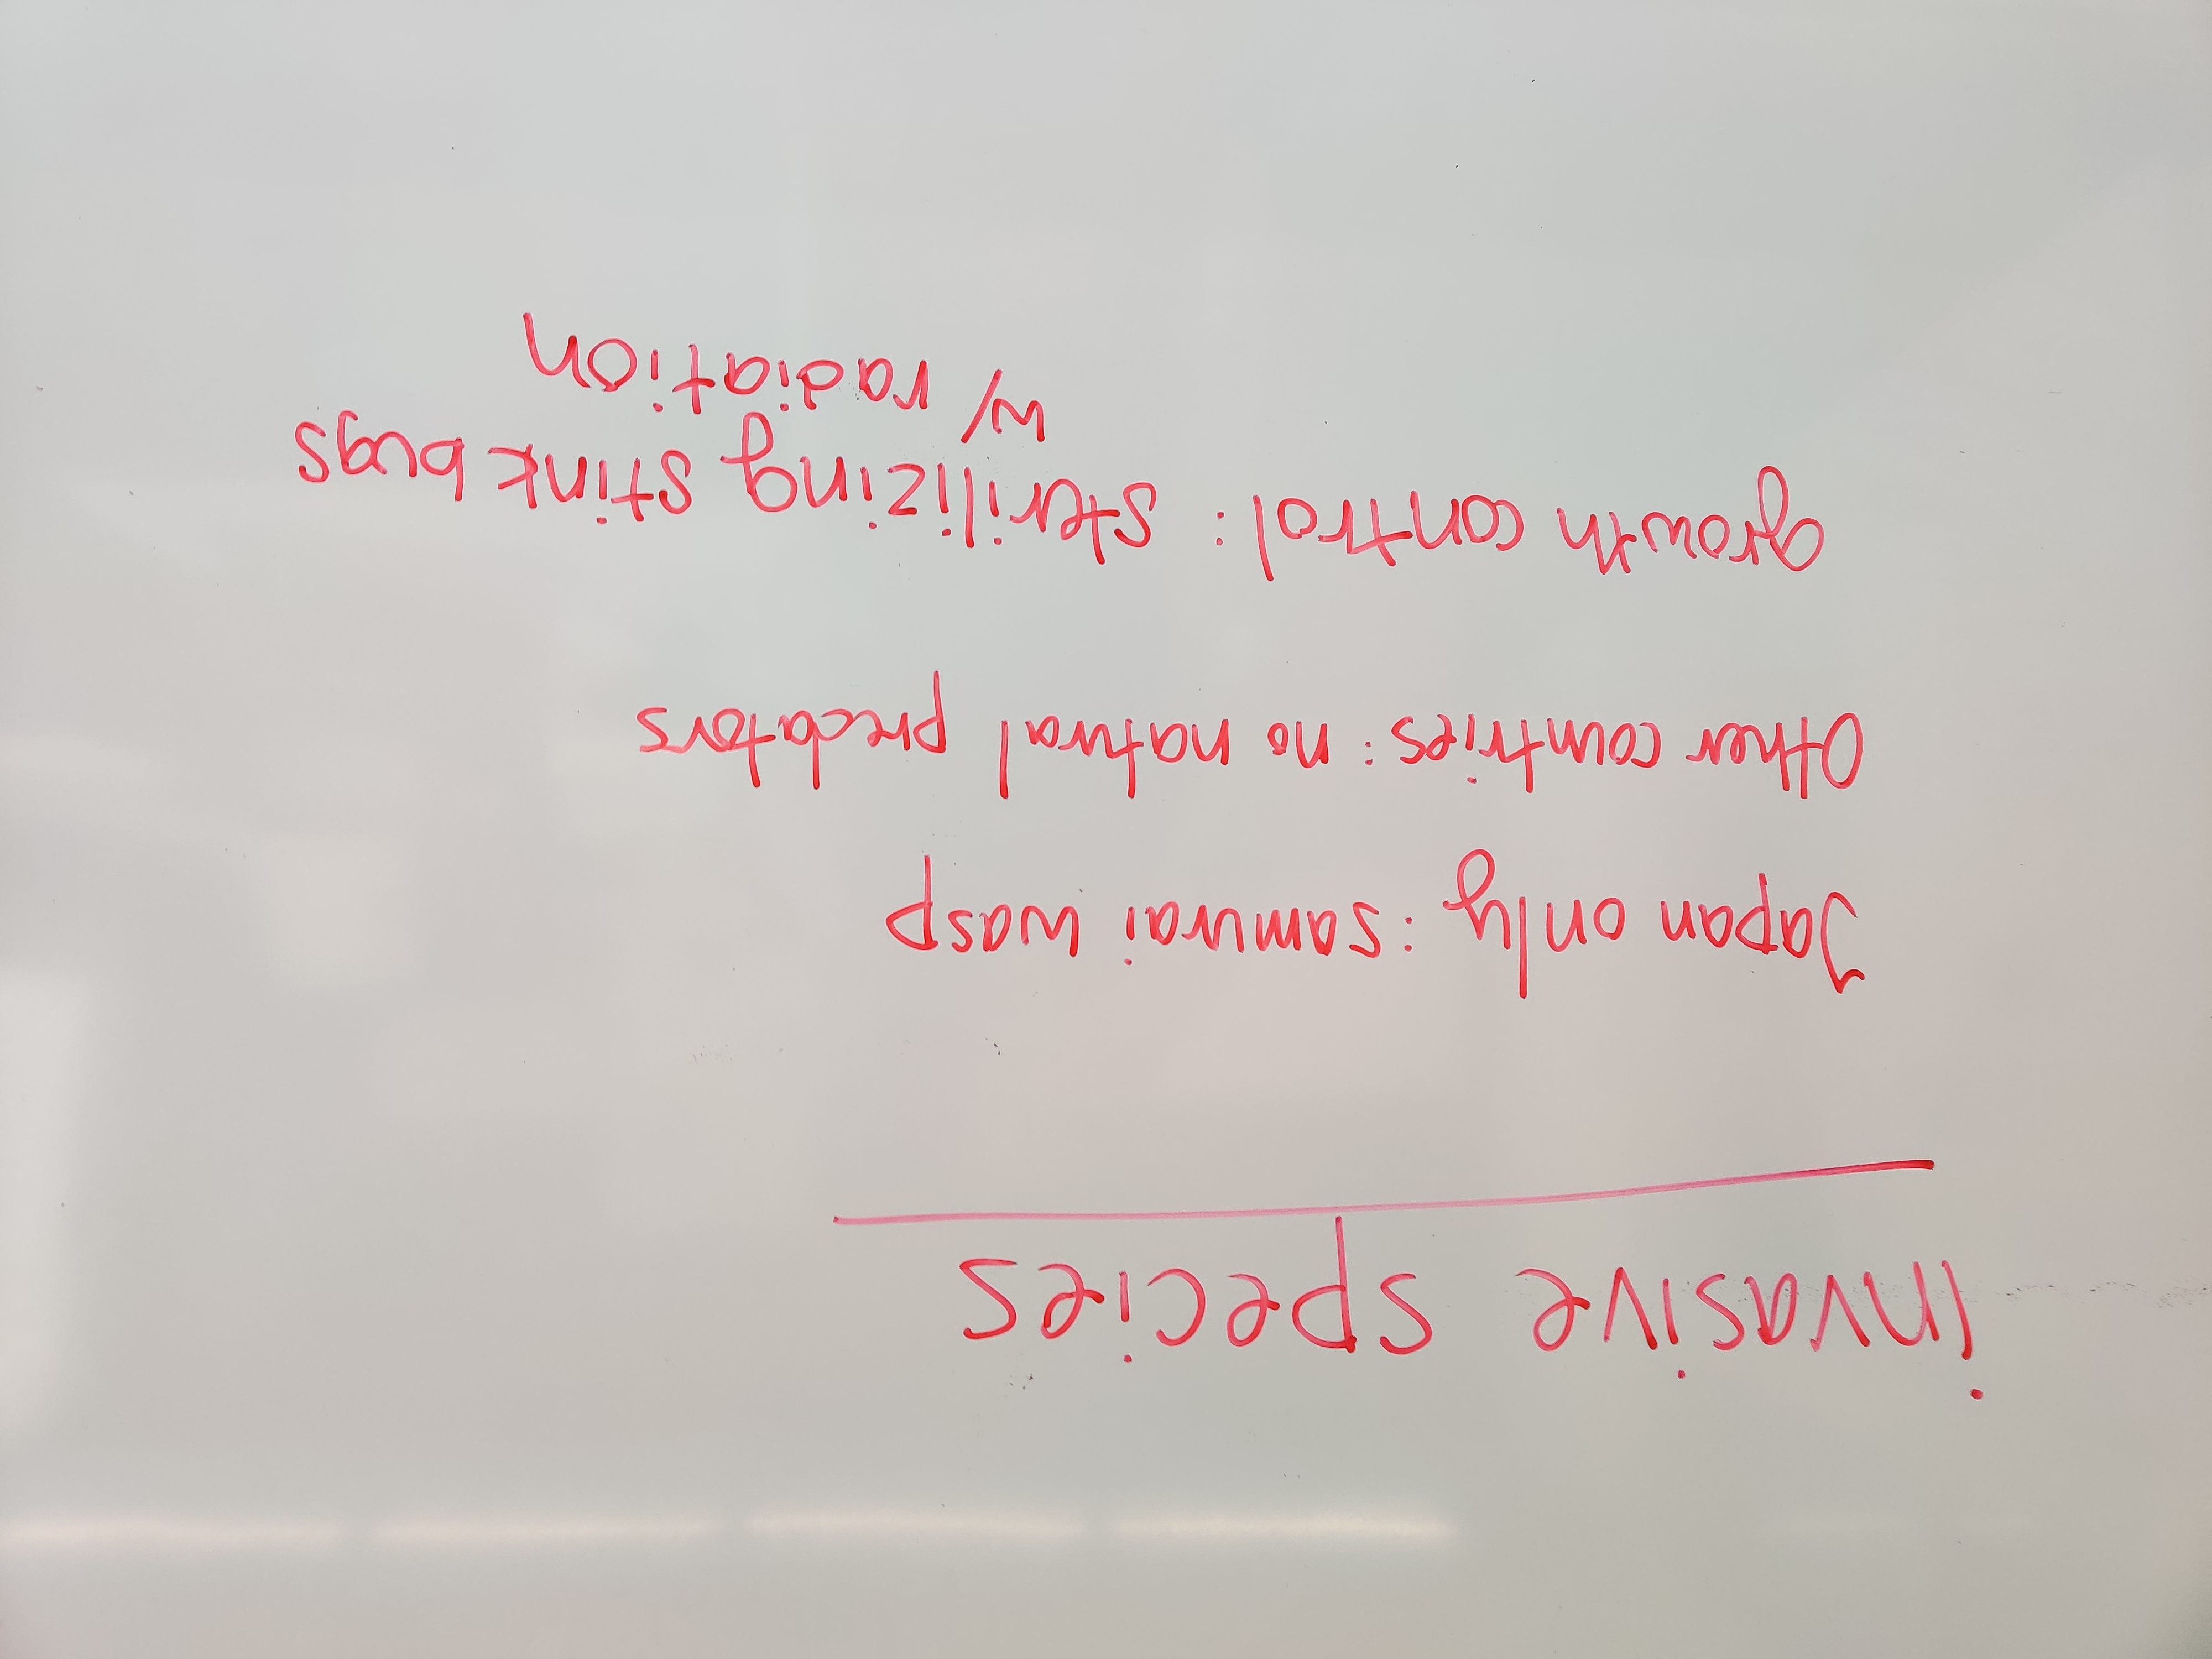 invasive species
Japan only : samurai wasp
Other countries: no natural predators
growth control: sterilizing stink bugs
w/ radiation